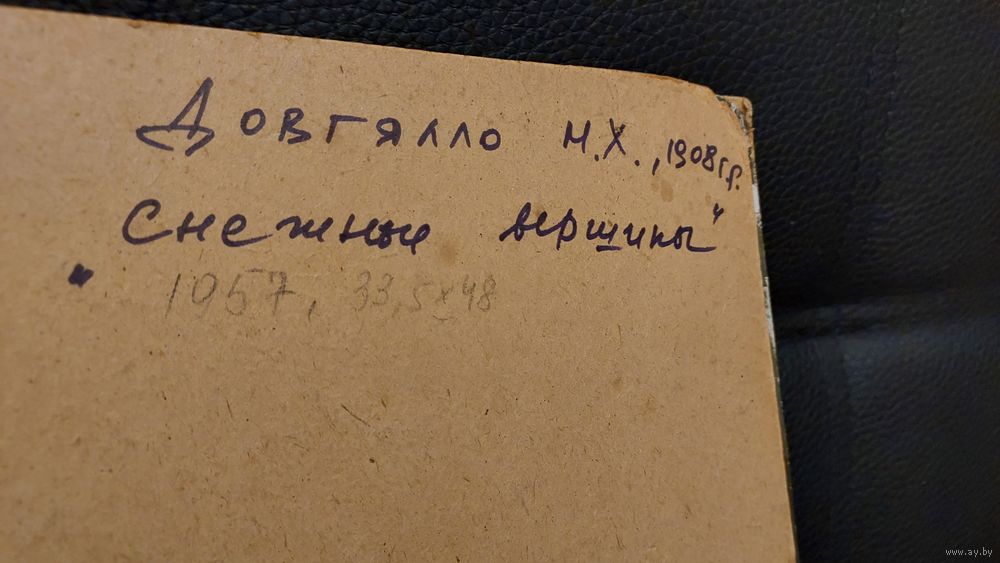 Довгялло Н.Х., 1908 г.р.
"Снежные вершины"
1957, 33,5x48
www.ay.by